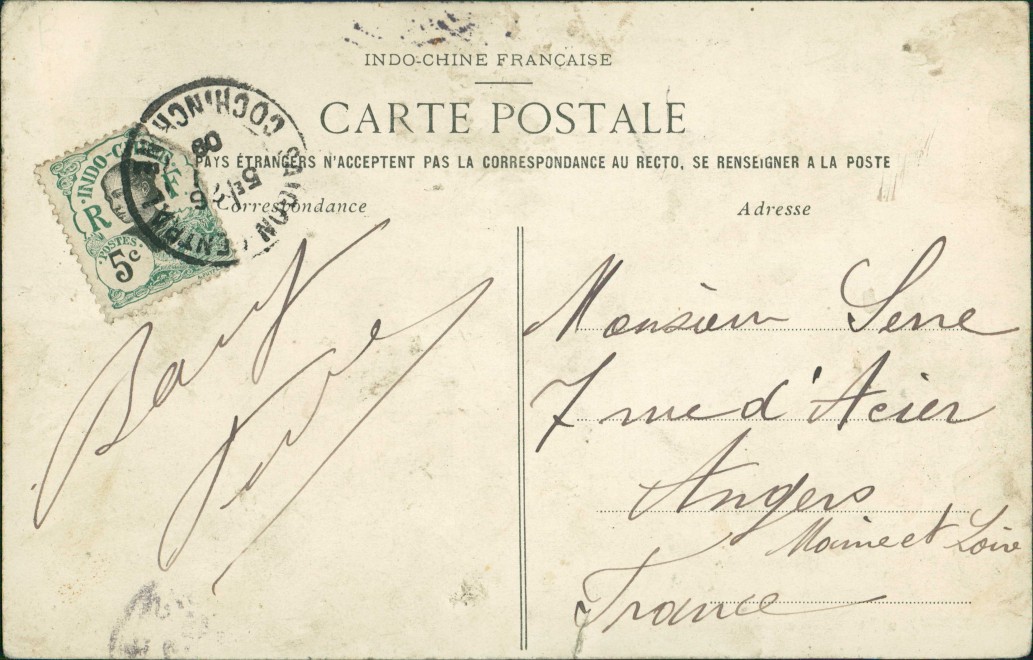 INDO-CHINE FRANÇAISE
CARTE POSTALE
PAYS ÉTRANGERS N'ACCEPTENT PAS LA CORRESPONDANCE AU RECTO, SE RENSEIGNER A LA POSTE
Correspondance
Adresse
INDO-CHINE
R F
POSTES
5c
SAIGON CENTRAL
COCHINCHINE
Monsieur Serre
7 rue d'Acier
Angers
Maine et Loire
France